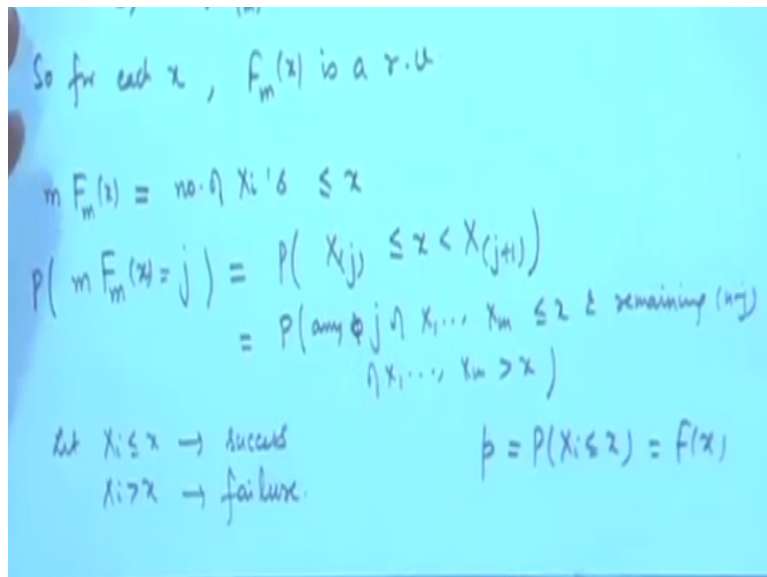 So for each x, F_m(x) is a r.v
m F_m(x) = no. of Xi's ≤ x
P( m F_m(x) = j ) = P( X_(j) ≤ x < X_(j+1) )
= P( any j of X_1, ..., X_m ≤ x & remaining (n-j)
of X_1, ..., X_m > x )
Let Xi ≤ x → success p = P(Xi ≤ x) = F(x)
Xi > x → failure.